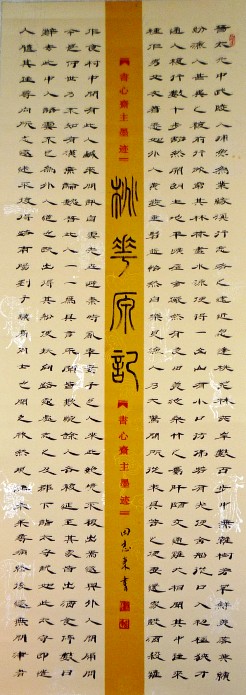 晉太元中武陵人捕魚為業緣溪行忘路之遠近忽逢桃花林夾岸數百步中無雜樹芳草鮮美落英繽
紛漁人甚異之復前行欲窮其林林盡水源便得一山山有小口仿佛若有光便舍船從口入初極狹才
通人復行數十步豁然開朗土地平曠屋舍儼然有良田美池桑竹之屬阡陌交通雞犬相聞其中往來
種作男女衣著悉如外人黃髮垂髫並怡然自樂見漁人乃大驚問所從來具答之便要還家設酒殺雞
青心齋主墨迹
桃花源記
青心齋主墨迹
作食村中聞有此人咸來問訊自云先世避秦時亂率妻子邑人來此絕境不復出焉遂與外人間隔問
今是何世乃不知有漢無論魏晉此人一一為具言所聞皆歎惋餘人各復延至其家皆出酒食停數日
辭去此中人語云不足為外人道也既出得其船便扶向路處處志之及郡下詣太守說如此太守即遣
人隨其往尋向所志遂迷不復得路南陽劉子驥高尚士也聞之欣然規往未果尋病終後遂無問津者